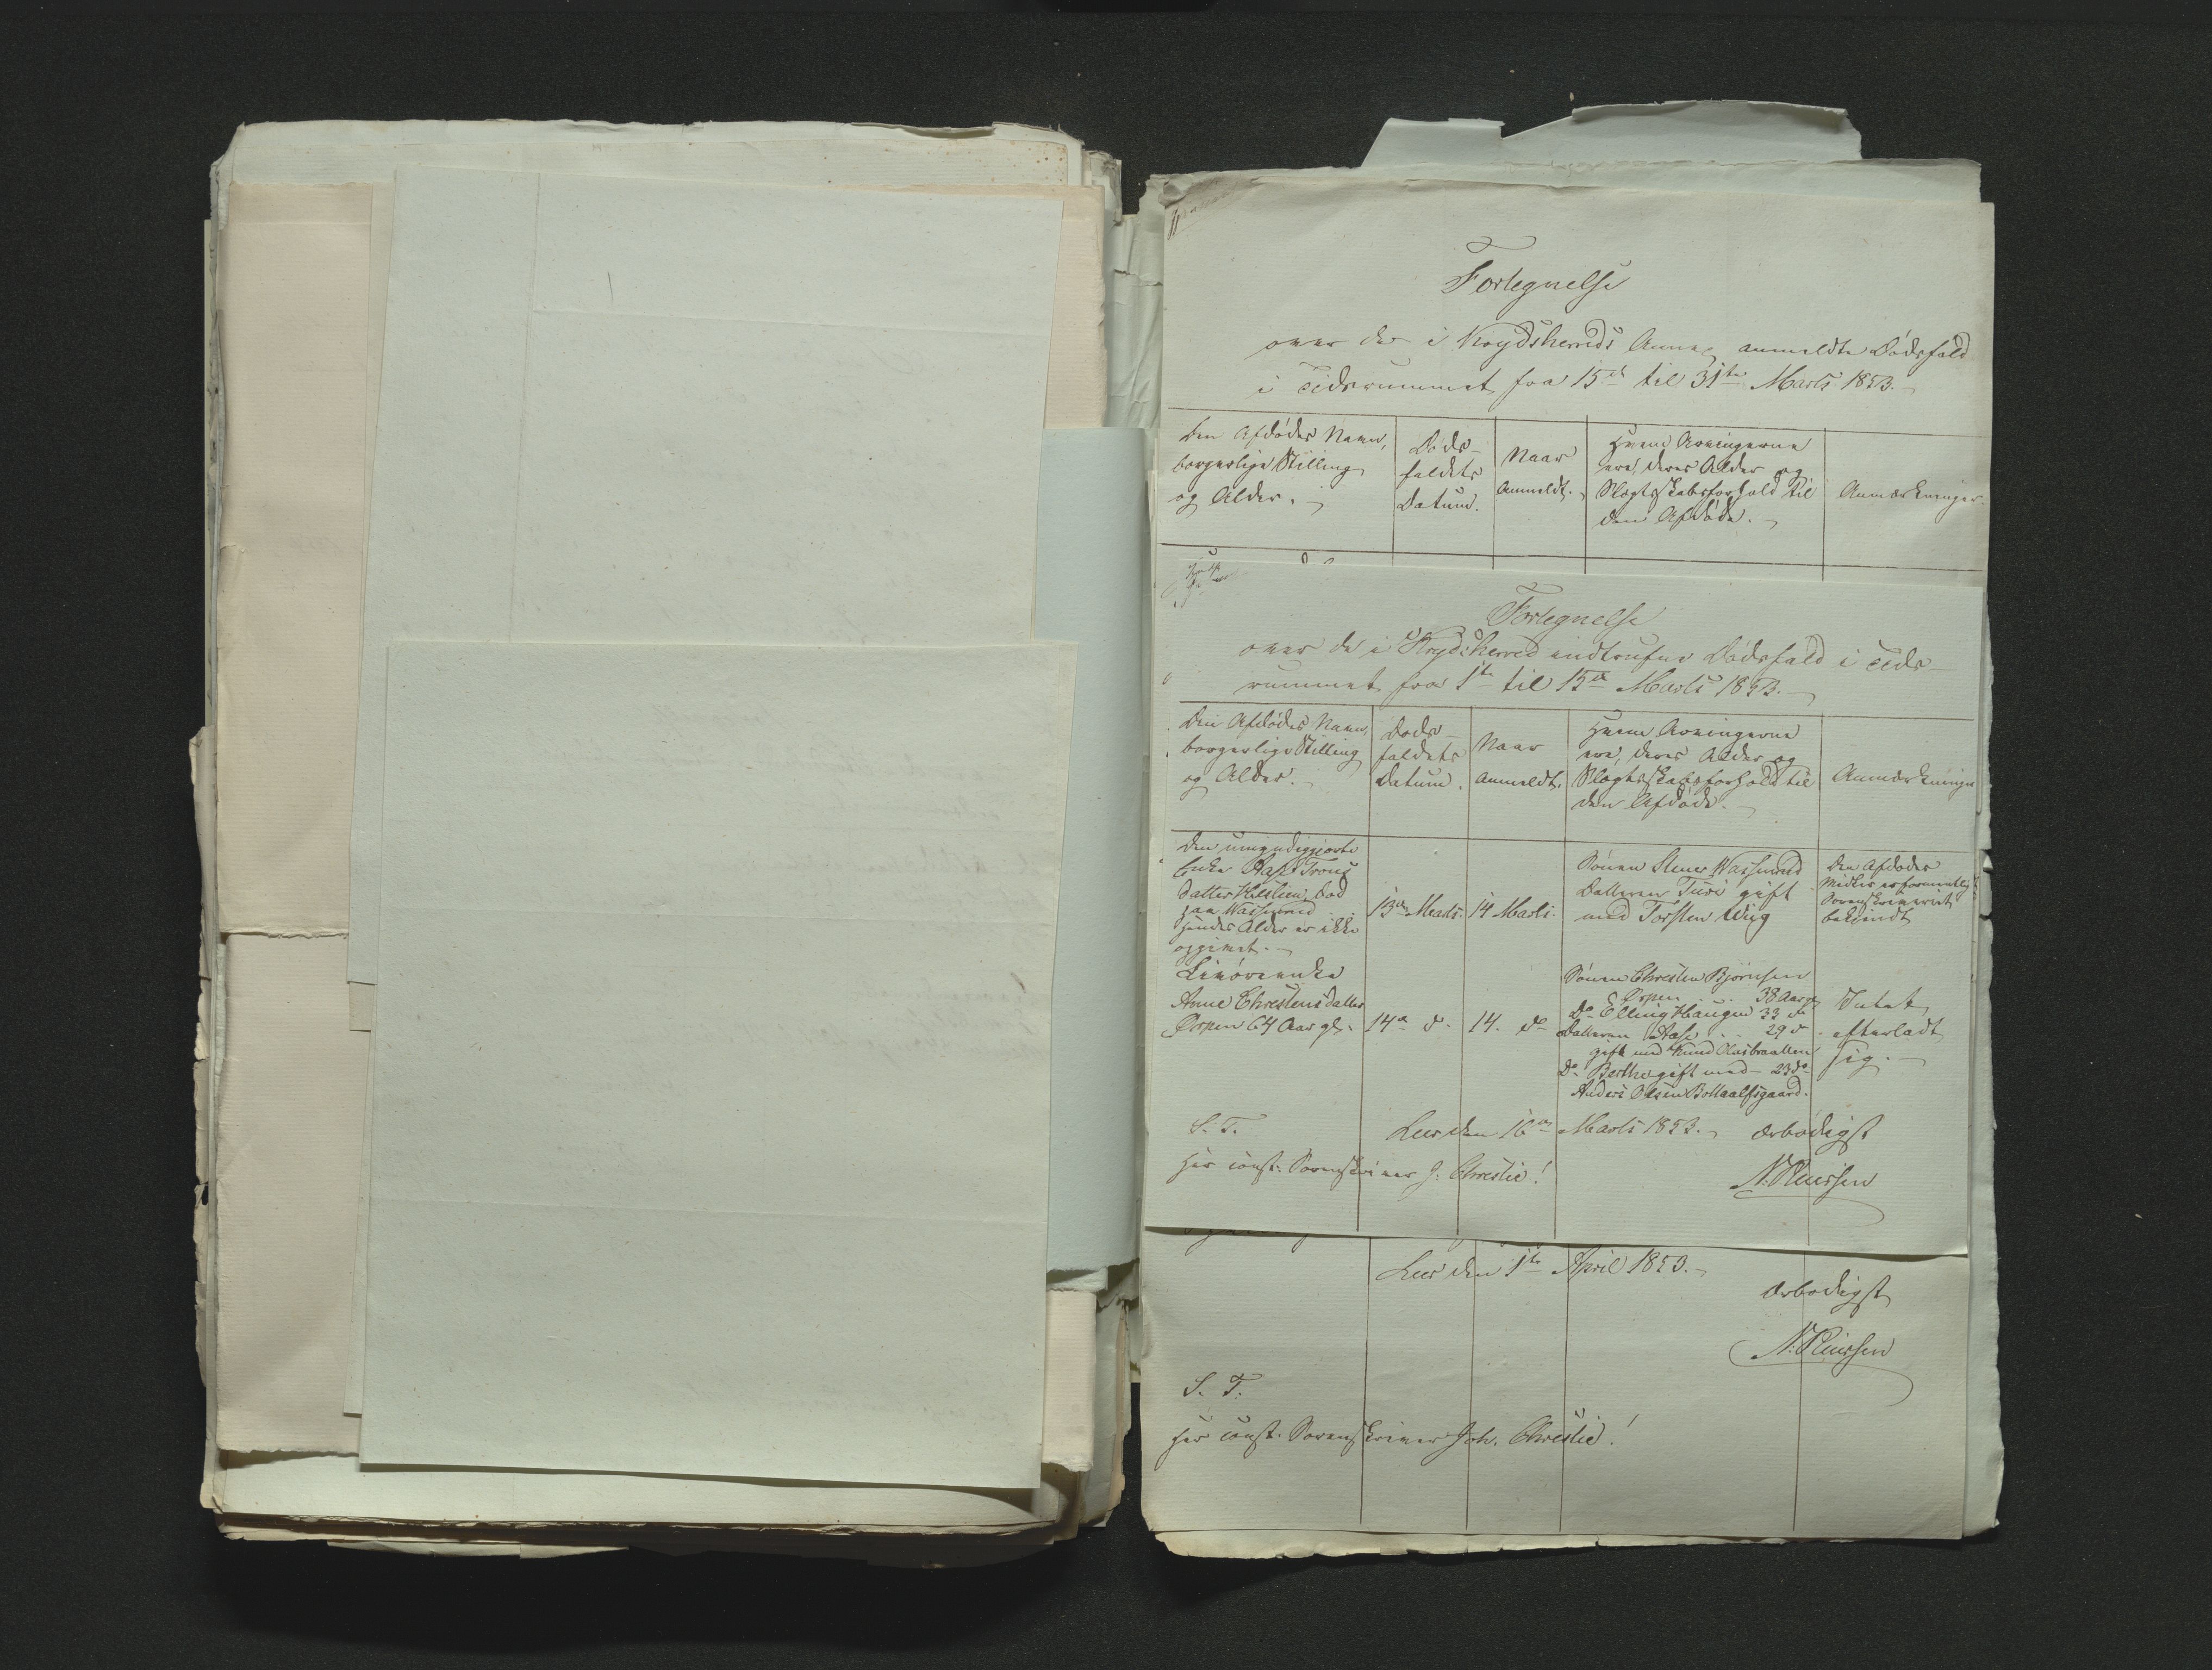 Fortegnelse
over de i Krydsherreds Annex anmeldte Dødsfald
i Tidsrummet fra 15de til 31te Marts 1853.
Den Afdødes Navn,
borgerlige Stilling
og Alder.
Døds-
faldets
Datum.
Naar
Anmeldt.
Hvem Arvingerne
ere, deres Alder og
Slægtsskabsforhold til
den Afdøde.
Anmærkninger.
Fortegnelse
over de i Krydsherred indtrufne Dødsfald i Tids-
rummet fra 1te til 15de Marts 1853.
Den Afdødes Navn,
borgerlige Stilling
og Alder.
Døds-
faldets
Datum.
Naar
anmeldt.
Hvem Arvingerne
ere, deres Alder og
Slægtsskabsforhold til
den Afdøde.
Anmærkninger
Den umyndiggjorte
Enke Aase Trons
datter
hendes Alder er ikke
opgivet.
13de Marts.
14 Marts.
Sønnen Stener
Datteren Turi gift
med Torsten Wiig
Den Afdødes
Midler er formentlig
Sorenskriveriet
bekjendt
Anne Christensdatter
Ørpen 64 Aar gl.
14de d.
14. do
Sønnen Christen Bjørnsen
Ørpen . . 38 Aar gl.
Do Elling Haugen 33 do
Datteren Aase . . 29 d
gift med Knud Olasbraatten
Do Berthe gift med 23 do
Anders Olsen Bottaalfsgaard.
Intet
efterladt
sig.
S. T.
Leer den 16de Marts 1853.
Ærbødigst
Hr. const. Sorenskriver J. Christie!
Leer den 1te April 1853.
Ærbødigst
S. T.
Hr. const. Sorenskriver Joh. Christie!